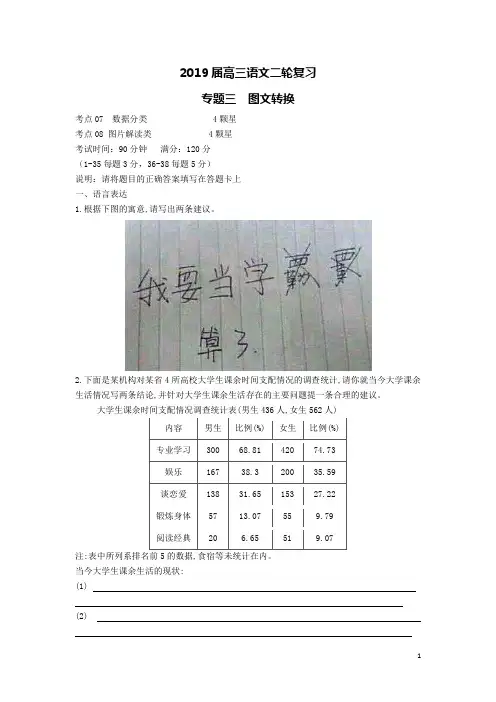 2019届高三语文二轮复习
专题三 图文转换
考点07 数据分类 4颗星
考点08 图片解读类 4颗星
考试时间:90分钟 满分:120分
(1-35每题3分,36-38每题5分)
说明:请将题目的正确答案填写在答题卡上
一、语言表达
1.根据下图的寓意,请写出两条建议。
我要当学
算了.
2.下面是某机构对某省4所高校大学生课余时间支配情况的调查统计,请你就当今大学课余
生活情况写两条结论,并针对大学生课余生活存在的主要问题提一条合理的建议。
大学生课余时间支配情况调查统计表(男生436人,女生562人)
内容 男生 比例(%) 女生 比例(%)
专业学习 300 68.81 420 74.73
娱乐 167 38.3 200 35.59
谈恋爱 138 31.65 153 27.22
锻炼身体 57 13.07 55 9.79
阅读经典 20 6.65 51 9.07
注:表中所列系排名前5的数据,食宿等未统计在内。
当今大学生课余生活的现状:
(1)
(2)
1